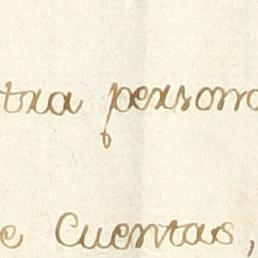 tra persona
e Cuentas,